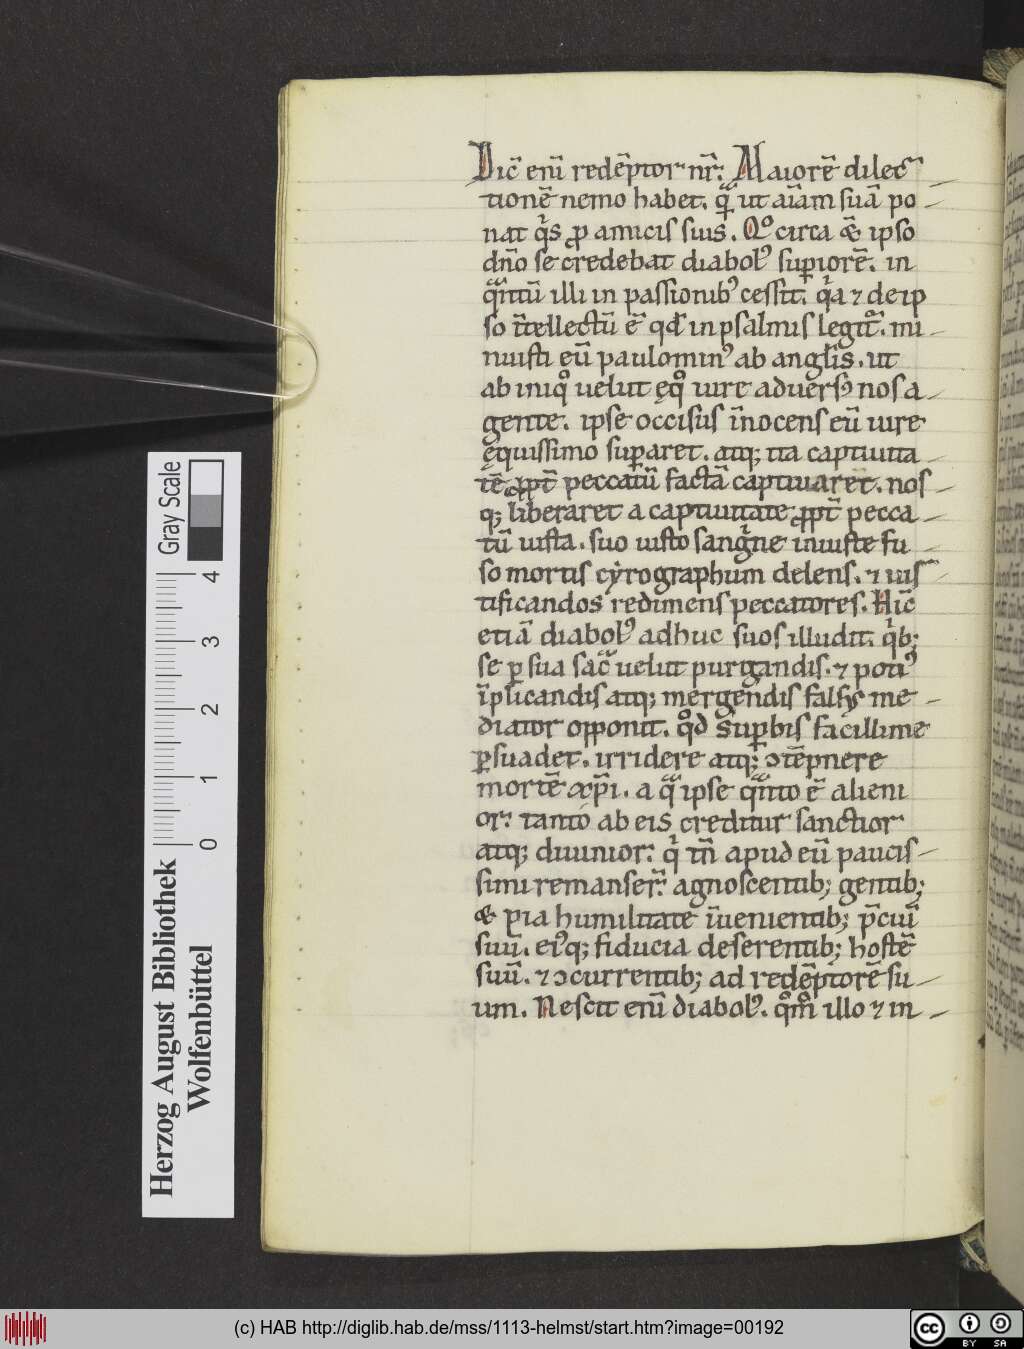 Dic̄ enī redēptor nr̄: Maiorē dilec
tionē nemo habet. qᷓ ut aīam suā po
nat q̍s ꝓ amicis suis. Qº circa & ipso
dño se credebat diabolꝰ supiorē. in
qᷓntū illi in passionibꝰ cessit. q̍a ⁊ de ip
so ītellectū ē qđ in psalmis legit̄. mi
nuisti eū paulominꝰ ab angl̄is. ut
ab iniqº uelut ęqº iure aduersꝰ nos a
gente. ipse occisus īnocens eū iure
ęquissimo suꝑaret. atq; ita captiuita
tē ꝓpt̄ peccatū factā captiuaret. nos
q; liberaret a captiuitate ꝓpt̄ pecca
tū iusta. suo iusto sang̍ne iniuste fu
so mortis cyrographum delens. ⁊ ius
tificandos redimens peccatores. Hīc
etiā diabolꝰ adhuc suos illudit. q̍b;
se ꝑ sua sac̄ uelut purgandis. ⁊ potiꝰ
īplicandis atq; mergendis falsus me
diator opponit. qºd suꝑbis facillime
ꝑsuadet. irridere atq; ↄtēpnere
mortē xp̄i. a qᷓ ipse qᷓnto ē alieni
or: tanto ab eis creditur sanctior
atq; diuinior: q̍ tn̄ apud eū paucis
simi remanser̄: agnoscentib; gentib;
& pia humilitate īuenientib; p̄ciū
suū. eiꝰq; fiducia deserentib; hostē
suū. ⁊ ↄcurrentib; ad redēptorē su
um. Nescit enī diabolꝰ. qºm̄ illo ⁊ in
Herzog August Bibliothek
Wolfenbüttel
Gray Scale
0 1 2 3 4
(c) HAB http://diglib.hab.de/mss/1113-helmst/start.htm?image=00192
cc BY SA